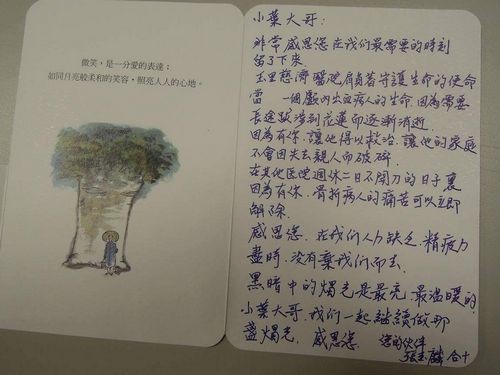 微笑，是一分愛的表達；
如同月亮般柔和的笑容，照亮人人的心地。
小葉大哥：
非常感恩您在我們最需要的時刻
留了下來
玉里慈濟醫院肩負著守護生命的使命
當一個顱內出血病人的生命，因為需要
長途跋涉到花蓮而逐漸消逝.
因為有你，讓他得以救治，讓他的家庭
不會因失去親人而破碎.
在其他医院週休二日不開刀的日子裏
因為有你，骨折病人的痛苦可以立即
解除.
感恩您，在我們人力缺乏，精疲力
盡時，沒有棄我們而去.
黑暗中的燭光是最亮，最溫暖的，
小葉大哥，我們一起繼續做那
盞燭光，感恩您. 您的伙伴
張玉麟 合十